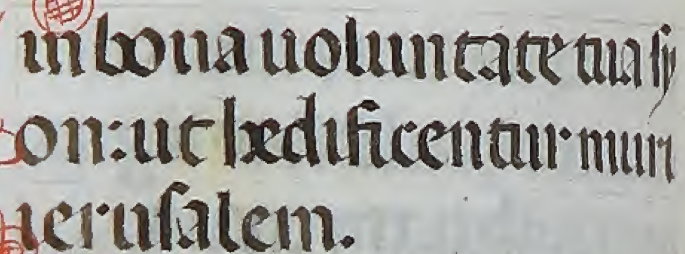 in bona uoluntate tua sy
on: ut hedificentur muri
ierusalem.